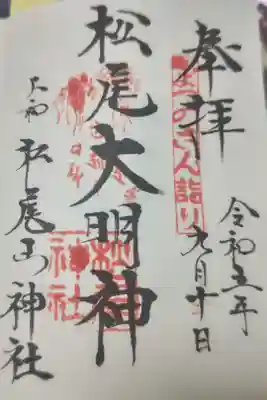 奉拝
よつのさん詣り
令和五年
九月十日
松尾大明神
大和
松尾山神社